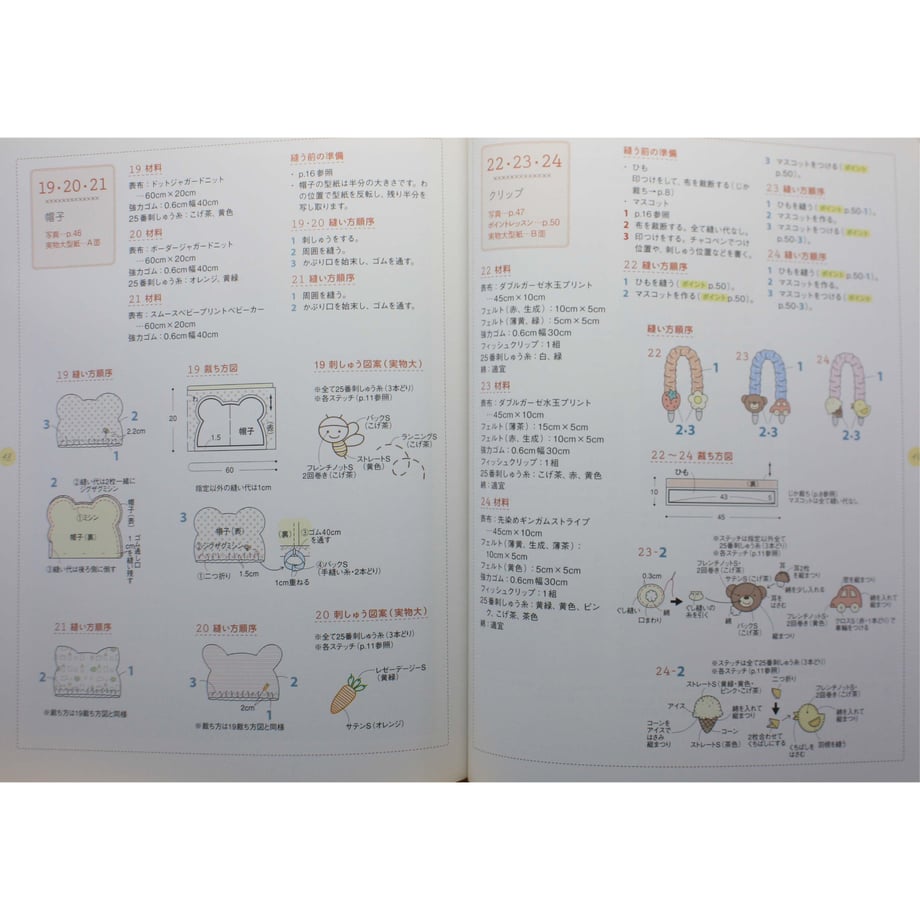 19・20・21
××××××××××××
帽子
写真…p.46
実物大型紙…A面
19 材料
表布：ドットジャガードニット
…60cm×20cm
強力ゴム：0.6cm幅40cm
25番刺しゅう糸：こげ茶、黄色
20 材料
表布：ボーダージャガードニット
…60cm×20cm
強力ゴム：0.6cm幅40cm
25番刺しゅう糸：オレンジ、黄緑
21 材料
表布：スムースベビープリントベビーカー
…60cm×20cm
強力ゴム：0.6cm幅40cm
縫う前の準備
・p.16参照
・帽子の型紙は半分の大きさです。わ
の位置で型紙を反転し、残り半分を
写し取ります。
19・20 縫い方順序
1 刺しゅうをする。
2 周囲を縫う。
3 かぶり口を始末し、ゴムを通す。
21 縫い方順序
1 周囲を縫う。
2 かぶり口を始末し、ゴムを通す。
19 縫い方順序
3
2
2.2cm
1
2
②縫い代は2枚一緒に
ジグザグミシン
①ミシン
帽子(表)
帽子(裏)
ゴム通し口
1cmを縫い残す
③縫い代は後ろ側に倒す
19 裁ち方図
20
1.5
帽子
(表)
60
指定以外の縫い代は1cm
3
帽子(表)
②ジグザグミシン
①二つ折り
1.5cm
(裏)
③ゴム40cm
を通す
④バックS
(手縫い糸・2本どり)
1cm重ねる
19 刺しゅう図案(実物大)
※全て25番刺しゅう糸(3本どり)
※各ステッチ(p.11参照)
バックS
(こげ茶)
ランニングS
(こげ茶)
ストレートS
(黄色)
フレンチノットS
2回巻き(こげ茶)
21 縫い方順序
2
1
※裁ち方は19裁ち方図と同様
20 縫い方順序
3
2
2cm
1
※裁ち方は19裁ち方図と同様
20 刺しゅう図案(実物大)
※全て25番刺しゅう糸(3本どり)
※各ステッチ(p.11参照)
レゼーデージーS
(黄緑)
サテンS(オレンジ)
48
22・23・24
××××××××××××
クリップ
写真…p.47
ポイントレッスン…p.50
実物大型紙…B面
22 材料
表布：ダブルガーゼ水玉プリント
…45cm×10cm
フェルト(赤、生成)：10cm×5cm
フェルト(薄黄、緑)：5cm×5cm
強力ゴム：0.6cm幅30cm
フィッシュクリップ：1組
25番刺しゅう糸：白、緑
綿：適宜
23 材料
表布：ダブルガーゼ水玉プリント
…45cm×10cm
フェルト(薄茶)：15cm×5cm
フェルト(赤、生成)：10cm×5cm
強力ゴム：0.6cm幅30cm
フィッシュクリップ：1組
25番刺しゅう糸：こげ茶、赤、黄色
綿：適宜
24 材料
表布：先染めギンガムストライプ
…45cm×10cm
フェルト(薄黄、生成、薄茶)：
10cm×5cm
フェルト(黄色)：5cm×5cm
強力ゴム：0.6cm幅30cm
フィッシュクリップ：1組
25番刺しゅう糸：黄緑、黄色、ピン
ク、こげ茶、茶色
綿：適宜
縫う前の準備
・ひも
印つけをして、布を裁断する(じか
裁ち→p.8)
・マスコット
1 p.16参照
2 布を裁断する。全て縫い代なし。
3 印つけをする。チャコペンでつけ
位置や、刺しゅう位置などを書く。
22 縫い方順序
1 ひもを縫う(ポイントp.50)。
2 マスコットを作る(ポイントp.50)。
3 マスコットをつける(ポイント
p.50)。
23 縫い方順序
1 ひもを縫う(ポイントp.50-1)。
2 マスコットを作る。
3 マスコットをつける(ポイント
p.50-3)。
24 縫い方順序
1 ひもを縫う(ポイントp.50-1)。
2 マスコットを作る。
3 マスコットをつける(ポイント
p.50-3)。
縫い方順序
22
1
2・3
23
1
2・3
24
1
2・3
22～24 裁ち方図
ひも
(裏)
10
43
5
45
じか裁ち(p.8参照)
マスコットは全て縫い代なし
※ステッチは指定以外全て
25番刺しゅう糸(3本どり)
※各ステッチ(p.11参照)
23-2
0.3cm
ぐし縫い
口まわり
綿
ぐし縫いの
糸を引く
綿
フレンチノットS・
2回巻き(こげ茶)
サテンS(こげ茶)
バックS
(こげ茶)
耳2枚
を縦まつり
綿を少し入れる
耳を
はさむ
縦まつり
フレンチノットS・
2回巻き(黄色)
窓を縫う
綿を入れて
縦まつり
クロスS(赤・1本どり)で
車輪をつける
24-2
※ステッチは全て25番刺しゅう糸(3本どり)
※各ステッチ(p.11参照)
ストレートS(黄緑・黄色・
ピンク・こげ茶)
アイス
綿を入れて
縦まつり
コーンを
アイスで
はさみ
縦まつり
コーン
ストレートS(茶色)
二つ折り
2枚合わせて
くちばしにする
フレンチノットS・
2回巻き(こげ茶)
綿を入れて
縦まつり
くちばしを
はさむ
羽根を縫う